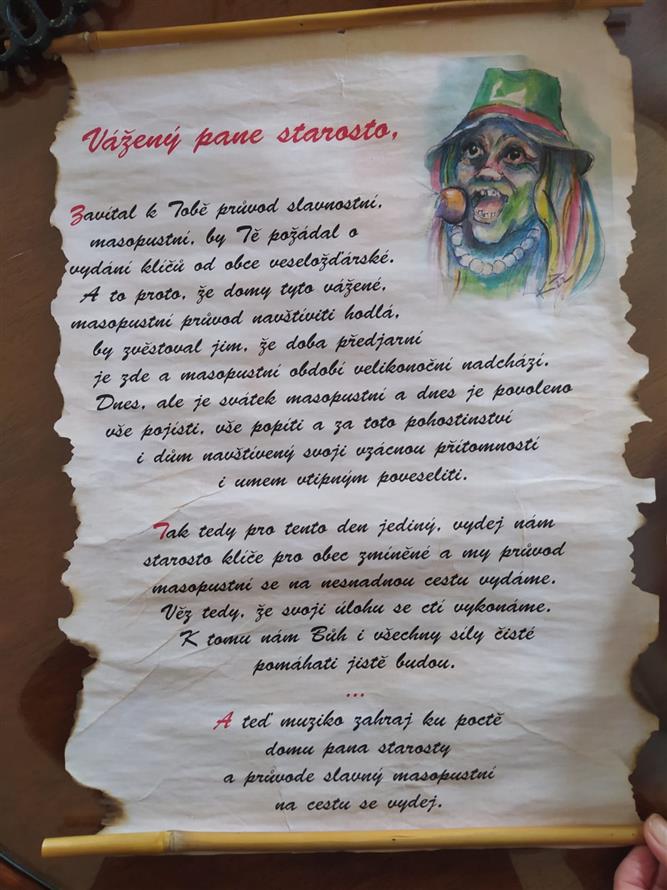 Vážený pane starosto,
Zavítal k Tobě průvod slavnostní,
masopustní, by Tě požádal o
vydání klíčů od obce veseložďárské.
A to proto, že domy tyto vážené,
masopustní průvod navštíviti hodlá,
by zvěstoval jim, že doba předjarní
je zde a masopustní období velikonoční nadchází.
Dnes, ale je svátek masopustní a dnes je povoleno
vše pojísti, vše popíti a za toto pohostinství
i dům navštívený svoji vzácnou přítomností
i umem vtipným poveseliti.
Tak tedy pro tento den jediný, vydej nám
starosto klíče pro obec zmíněné a my průvod
masopustní se na nesnadnou cestu vydáme.
Věz tedy, že svoji úlohu se ctí vykonáme.
K tomu nám Bůh i všechny síly čisté
pomáhati jistě budou.
...
A teď muziko zahraj ku poctě
domu pana starosty
a průvode slavný masopustní
na cestu se vydej.